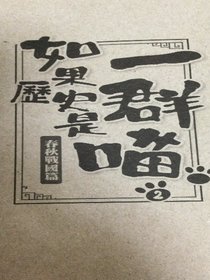 如果歷史是
一群喵
2
春秋戰國篇